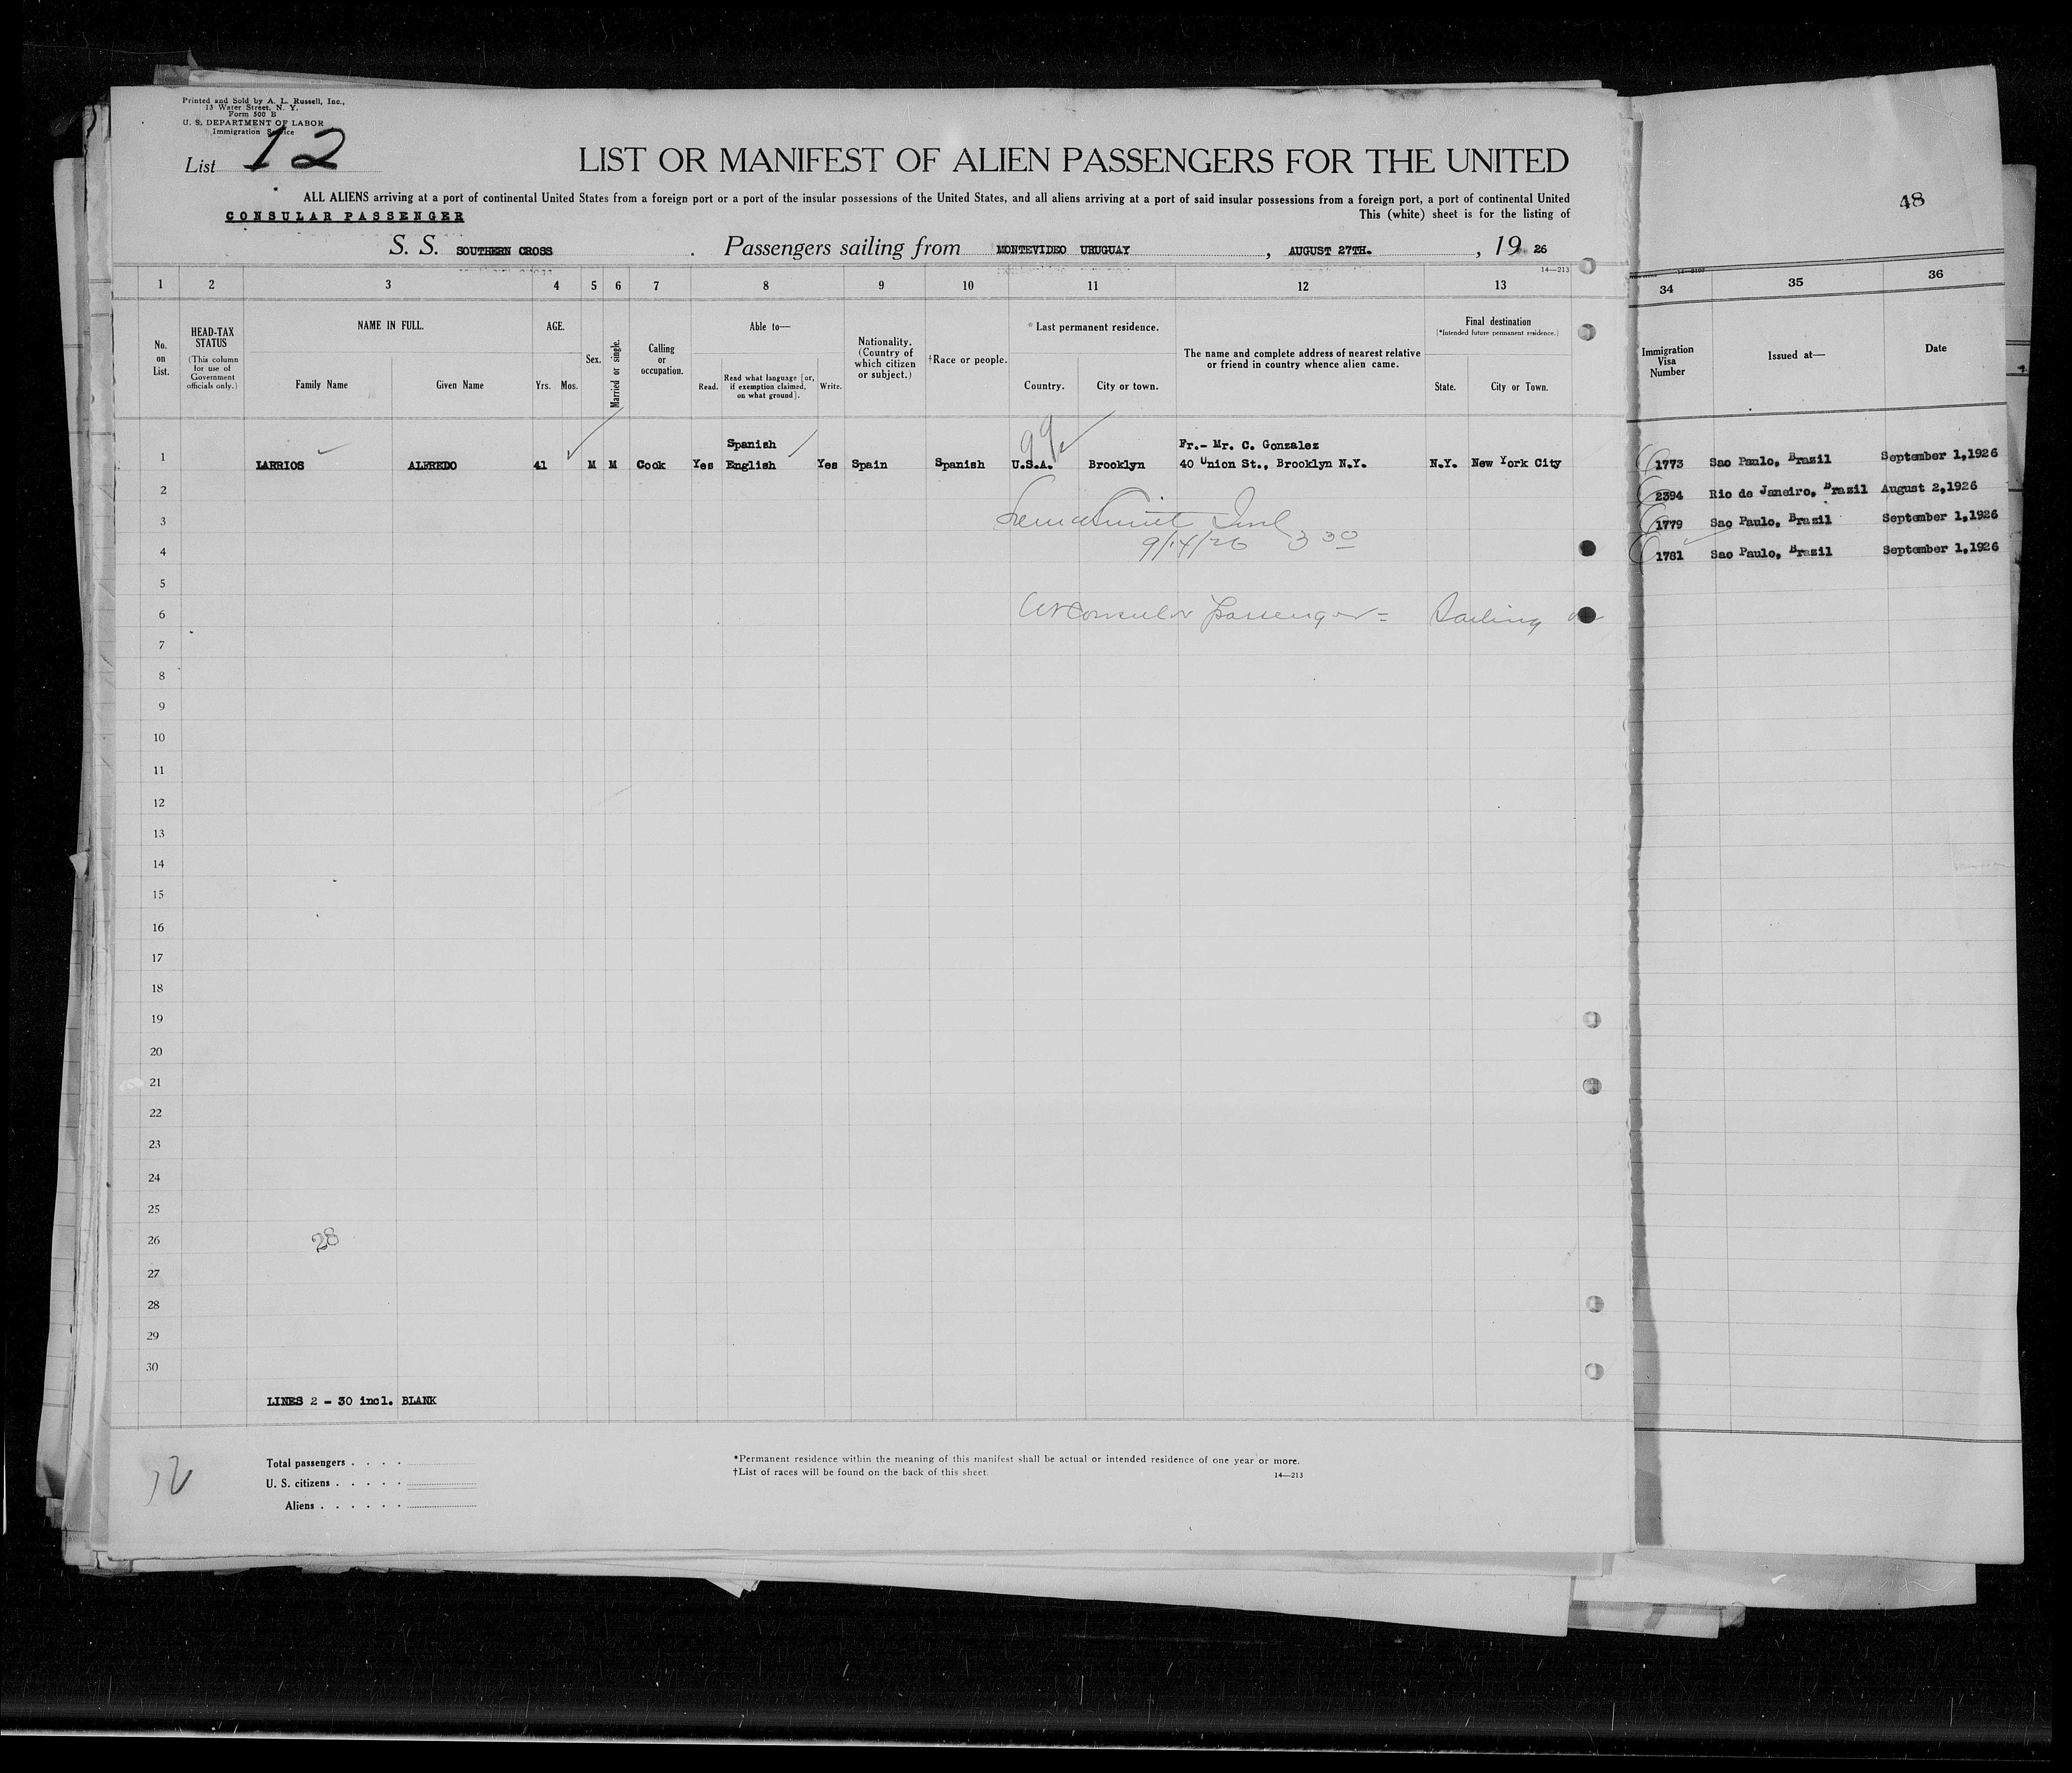 Printed and Sold by A. L. Russell, Inc.,
13 Water Street, N. Y.
Form 500 B
U. S. DEPARTMENT OF LABOR
Immigration Service
List 12
LIST OR MANIFEST OF ALIEN PASSENGERS FOR THE UNITED
ALL ALIENS arriving at a port of continental United States from a foreign port or a port of the insular possessions of the United States, and all aliens arriving at a port of said insular possessions from a foreign port, a port of continental United
CONSULAR PASSENGER This (white) sheet is for the listing of
S. S. SOUTHERN CROSS . Passengers sailing from MONTEVIDEO URUGUAY , AUGUST 27TH. , 19 26
14—213
1 2 3 4 5 6 7 8 9 10 11 12 13
No. on List.
HEAD-TAX STATUS
(This column for use of Government officials only.)
NAME IN FULL.
Family Name Given Name
AGE.
Yrs. Mos.
Sex.
Married or single.
Calling or occupation.
Able to—
Read. Read what language [or, if exemption claimed, on what ground]. Write.
Nationality. (Country of which citizen or subject.)
†Race or people.
*Last permanent residence.
Country. City or town.
The name and complete address of nearest relative or friend in country whence alien came.
Final destination
(*Intended future permanent residence.)
State. City or Town.
Spanish Fr.- Mr. C. Gonzalez
1 LARRIOS ALFREDO 41 M M Cook Yes English Yes Spain Spanish U.S.A. Brooklyn 40 Union St., Brooklyn N.Y. N.Y. New York City
2
3
9/14/26 3 30
4
5
6 Consular passenger = Sailing
7
8
9
10
11
12
13
14
15
16
17
18
19
20
21
22
23
24
25
26 28
27
28
29
30
LINES 2 - 30 incl. BLANK
12
Total passengers . . . .
U. S. citizens . . . . .
Aliens . . . . . .
*Permanent residence within the meaning of this manifest shall be actual or intended residence of one year or more.
†List of races will be found on the back of this sheet. 14—213
48
34 35 36
Immigration Visa Number Issued at— Date
1773 Sao Paulo, Brazil September 1,1926
2394 Rio de Janeiro, Brazil August 2,1926
1779 Sao Paulo, Brazil September 1,1926
1781 Sao Paulo, Brazil September 1,1926